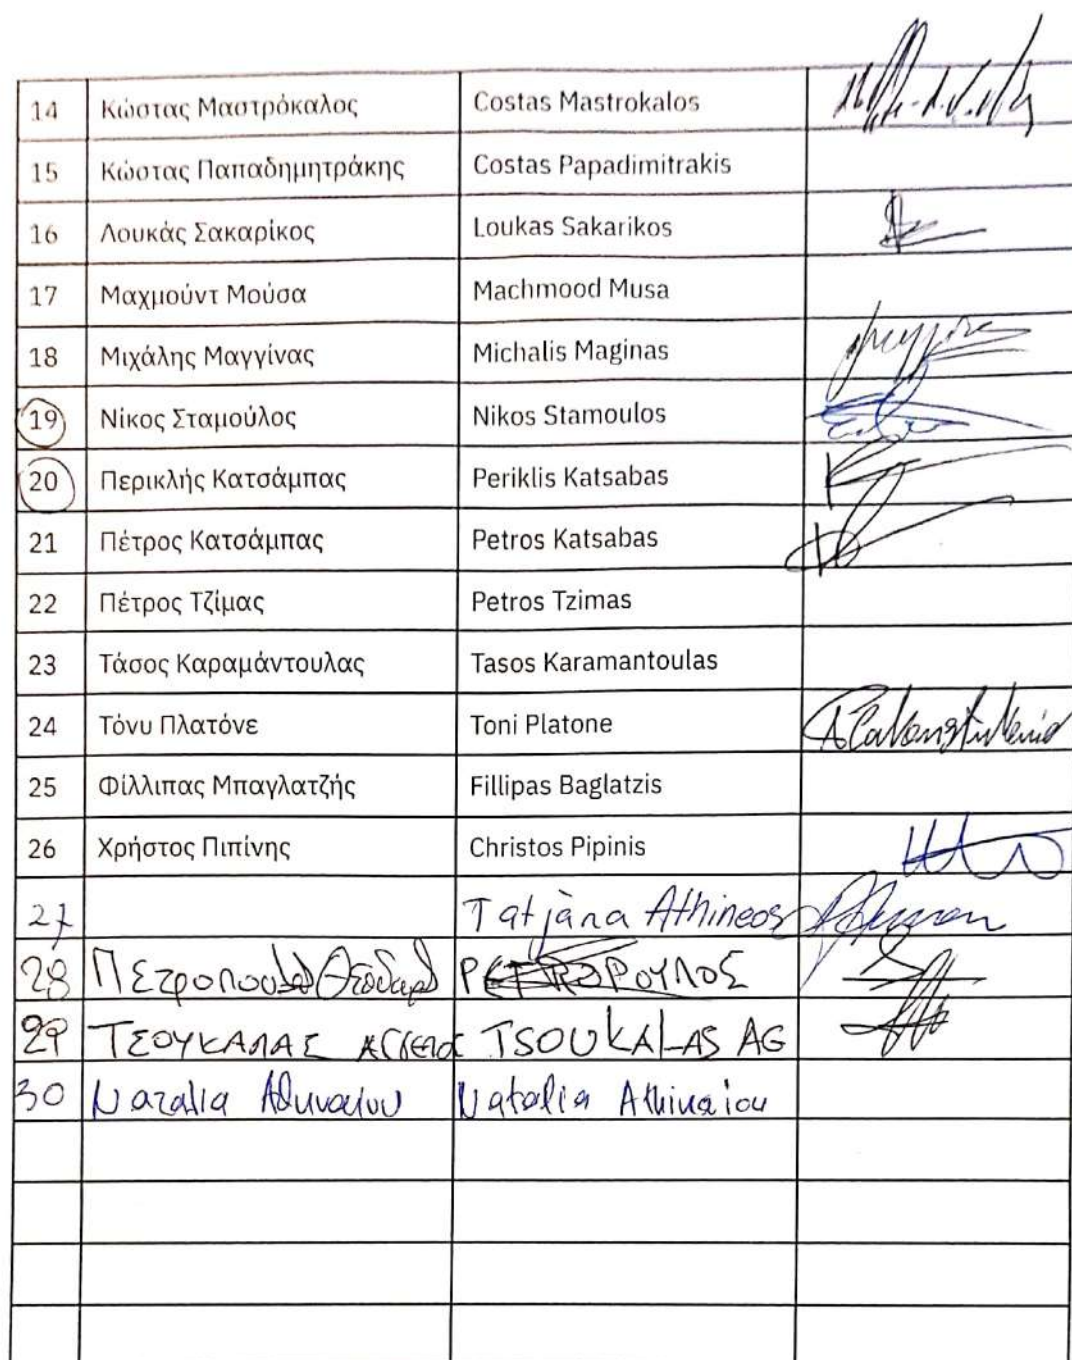 14 Κώστας Μαστρόκαλος Costas Mastrokalos
15 Κώστας Παπαδημητράκης Costas Papadimitrakis
16 Λουκάς Σακαρίκος Loukas Sakarikos
17 Μαχμούντ Μούσα Machmood Musa
18 Μιχάλης Μαγγίνας Michalis Maginas
19 Νίκος Σταμούλος Nikos Stamoulos
20 Περικλής Κατσάμπας Periklis Katsabas
21 Πέτρος Κατσάμπας Petros Katsabas
22 Πέτρος Τζίμας Petros Tzimas
23 Τάσος Καραμάντουλας Tasos Karamantoulas
24 Τόνυ Πλατόνε Toni Platone
25 Φίλλιπας Μπαγλατζής Fillipas Baglatzis
26 Χρήστος Πιπίνης Christos Pipinis
27 Tatjàna Athineos
28
29 ΤΣΟΥΚΑΛΑΣ TSOUKALAS AG
30 Ναταλια Αθηναιου Natalia Athinaiou